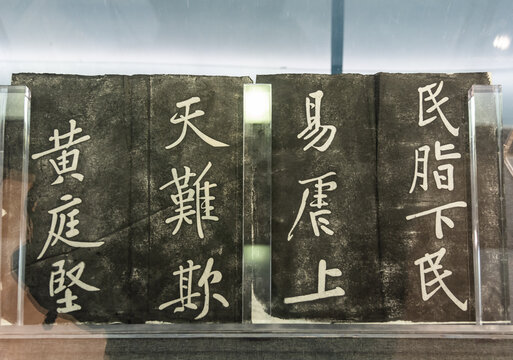 民脂下民
易虐上
天難欺
黄庭堅